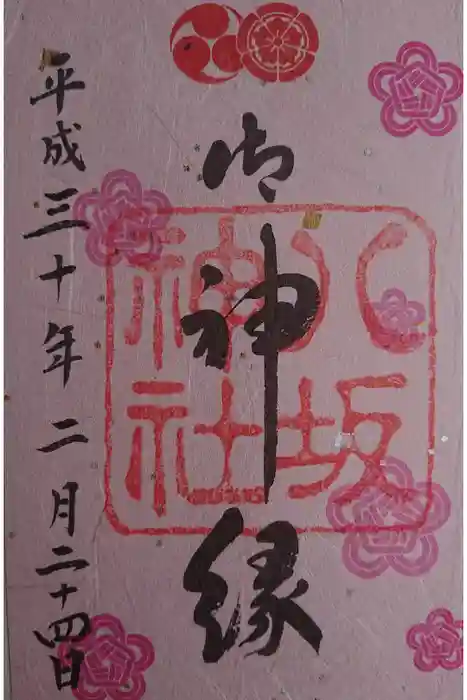 御神縁
八坂
神社
平成三十年二月二十四日